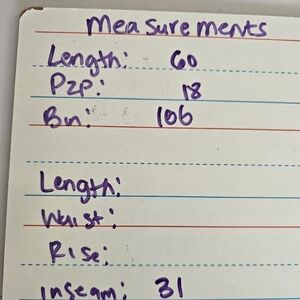 Measurements
Length: 60
P2P: 18
Bn: 106
Length:
Waist:
Rise:
inseam: 31